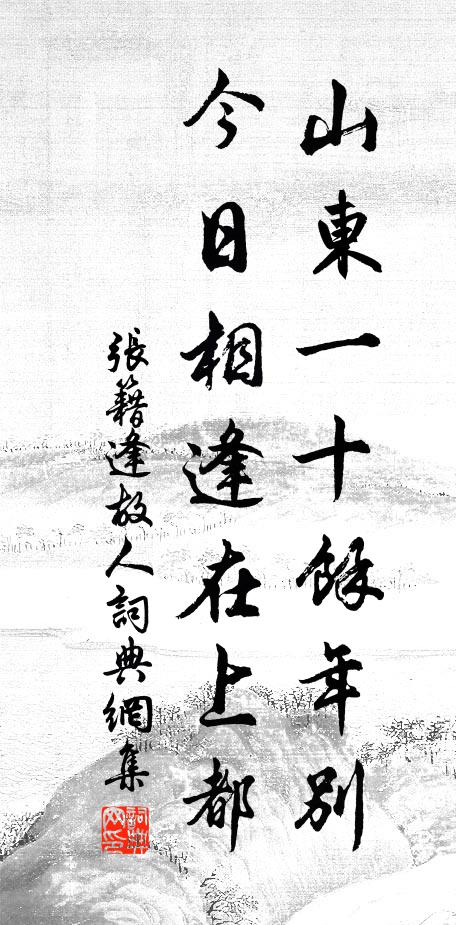 山東一十餘年別
今日相逢在上都
張籍逢故人詞典網集